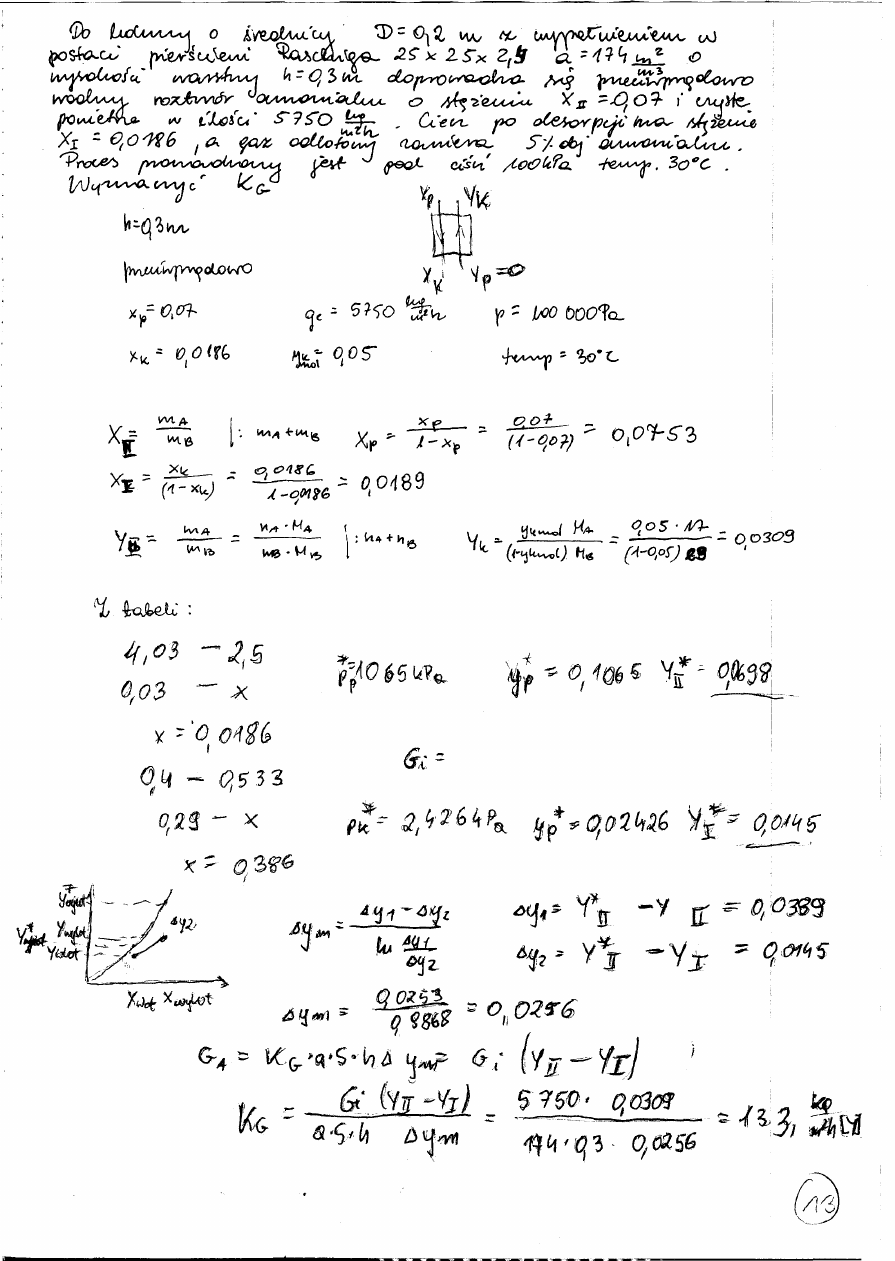 Do kolumny o średnicy D=0,2 m z wypełnieniem w
postaci pierścieni Raschiga 25x25x2,5 a=174 m²/m³ o
wysokości warstwy h=0,3m doprowadza się przeciwprądowo
wodny roztwór amoniaku o stężeniu X_II=0,07 i czyste
powietrze w ilości 5750 kg/m²h. Ciecz po desorpcji ma stężenie
X_I=0,0186, a gaz odlotowy zawiera 5% obj amoniaku.
Proces prowadzony jest pod ciśń 100kPa temp. 30°C.
Wyznaczyć K_G
x_p Y_K
h=0,3m
przeciwprądowo
x_K Y_p=0
x_p=0,07 g_c = 5750 kg/m²h p = 100 000Pa
x_k = 0,0186 y_k mol = 0,05 temp = 30°C
X_II = m_A/m_B |: m_A+m_B X_p = x_p/(1-x_p) = 0,07/(1-0,07) = 0,0753
X_I = x_k/(1-x_k) = 0,0186/(1-0,0186) = 0,0189
Y_II = m_A/m_B = n_A·M_A/n_B·M_B |: n_A+n_B Y_k = y_kmol M_A/(1-y_kmol) M_B = 0,05·17/(1-0,05) 29 = 0,0309
Z tabeli:
4,03 – 2,5 p_p* = 1065kPa y_p* = 0,1065 Y_II* = 0,0698
0,03 – x
x = 0,0186
G_i =
0,4 – 0,533
0,29 – x p_k* = 2,426kPa y_p* = 0,02426 Y_I* = 0,0145
x = 0,386
Δy2
X_wlot X_wylot
Δy_m = (Δy1-Δy2)/(ln Δy1/Δy2) Δy1 = Y*_II – Y_II = 0,0389
Δy2 = Y*_II – Y_I = 0,0145
Δy_m = 0,0253/0,9868 = 0,0256
G_A = K_G·a·S·h Δy_m = G_i (Y_II – Y_I)
K_G = G_i (Y_II – Y_I)/(a·S·h Δy_m) = 5750·0,0309/(174·0,3·0,0256) = 133, kg/m²h[Y]
13